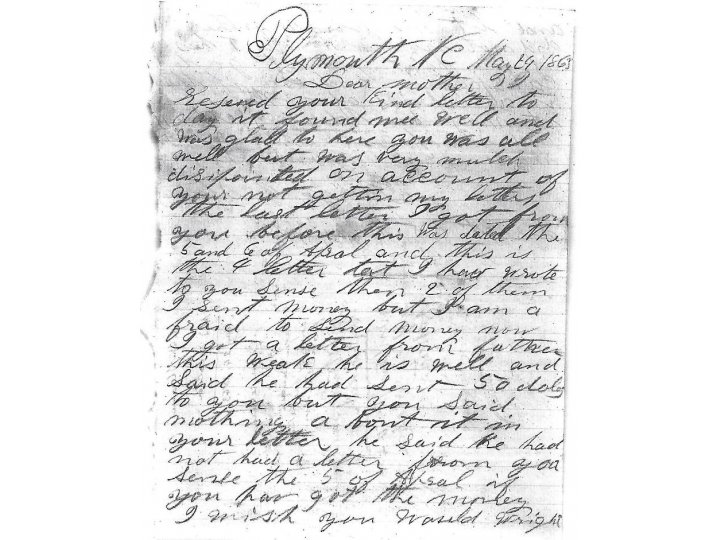 Plymouth NC May 29 1863
Dear mother I
reseved your kind letter to
day it found mee well and
was glad to here you was all
well but was very mutch
disipointed on account of
your not gettin my letters
the last letter I got from
you before this was dated the
5 and 6 of Apral and this is
the 4 letter tat I hav wrote
to you sense then 2 of them
I sent money but I am a
fraid to send money now
I got a letter from father
this weak he is well and
Said he had sent 50 dols
to you but you said
nothing a bout it in
your letter he said he had
not had a letter from you
sense the 5 of Apral if
you hav got the money
I wish you would wright